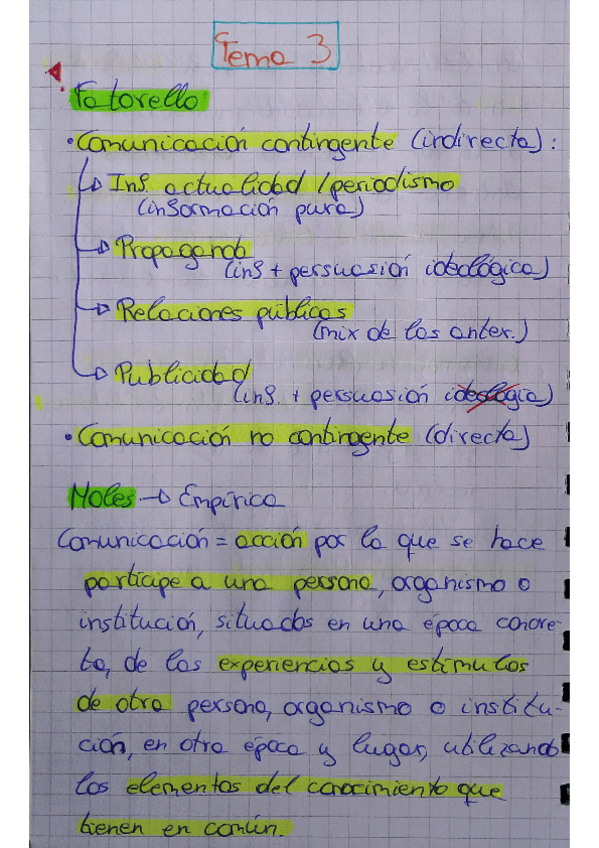 Tema 3
Fatorello
• Comunicación contingente (indirecta):
→ Inf. actualidad / periodismo
(información pura)
→ Propaganda
(inf + persuasión ideológica)
→ Relaciones públicas
(mix de las anter.)
→ Publicidad
(inf. + persuasión ideología)
• Comunicación no contingente (directa)
Moles → Empírica
Comunicación = acción por la que se hace
partícipe a una persona, organismo o
institución, situados en una época concre-
ta, de las experiencias y estímulos
de otra persona, organismo o institu-
ción, en otra época y lugar, utilizando
los elementos del conocimiento que
tienen en común.